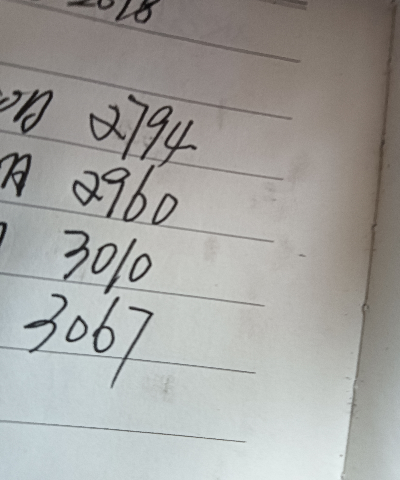 2018
2794
2960
3010
3067